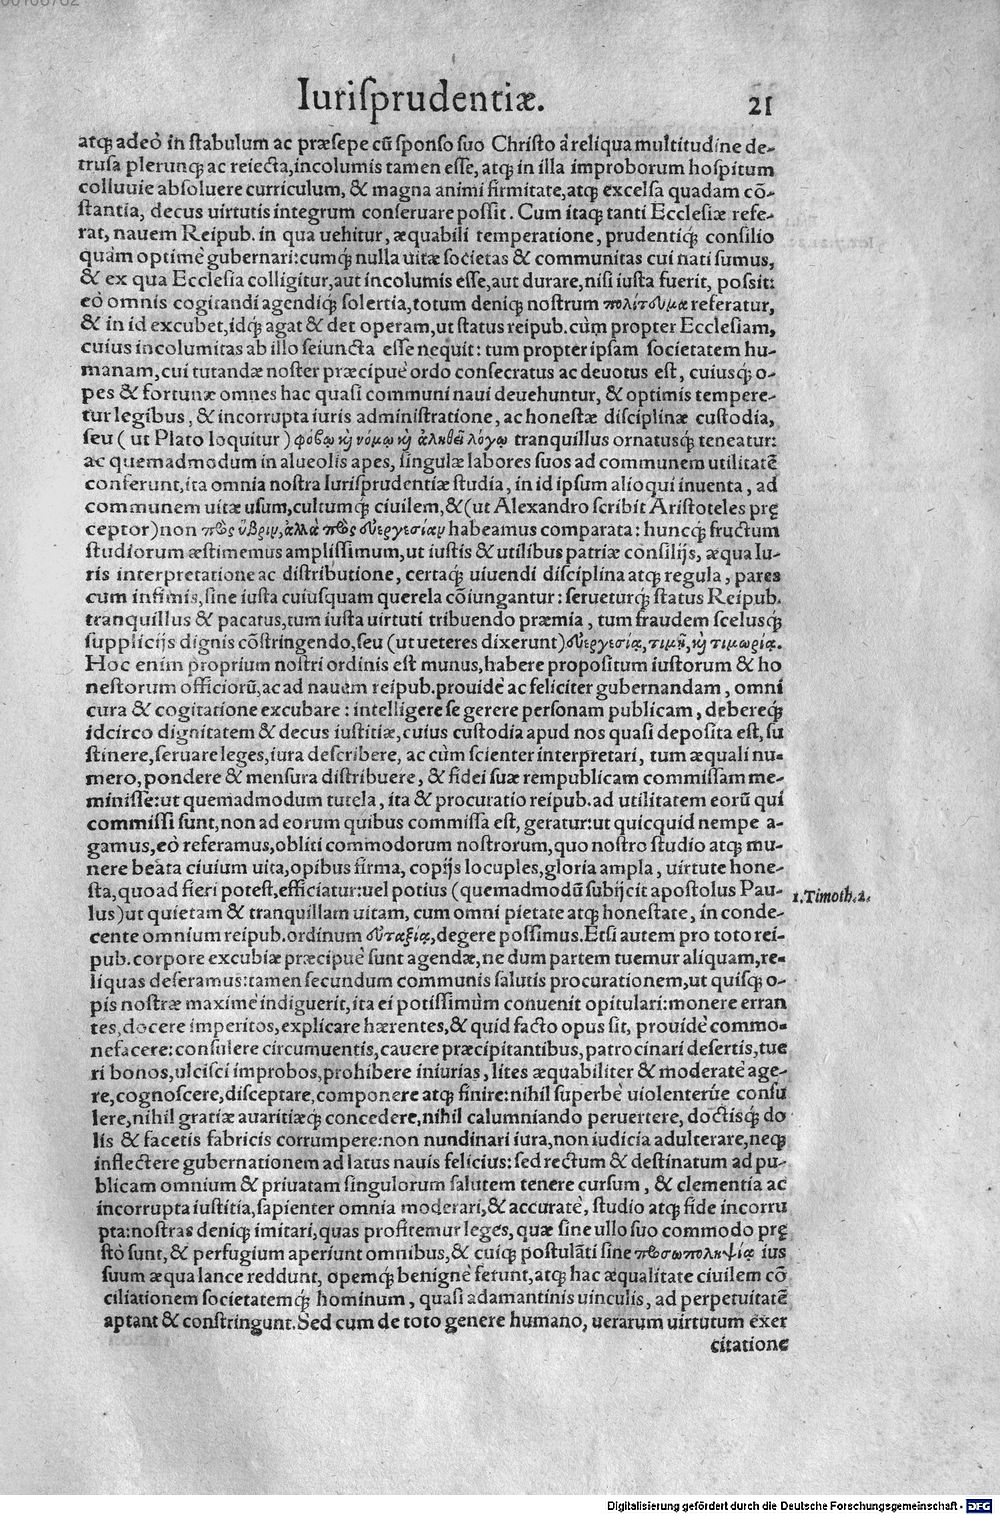 Iurisprudentiæ. 21
atq́ꝫ adeò in stabulum ac præsepe cū sponso suo Christo à reliqua multitudine de-
trusa plerunq́ꝫ ac reiecta, incolumis tamen esse, atq́ꝫ in illa improborum hospitum
colluuie absoluere curriculum, & magna animi firmitate, atq́ꝫ excelsa quadam cō-
stantia, decus uirtutis integrum conseruare possit. Cum itaq́ꝫ tanti Ecclesiæ refe-
rat, nauem Reipub. in qua uehitur, æquabili temperatione, prudentiq́ꝫ consilio
quàm optimè gubernari: cumq́ꝫ nulla uitæ societas & communitas cui nati sumus,
& ex qua Ecclesia colligitur, aut incolumis esse, aut durare, nisi iusta fuerit, possit:
eò omnis cogitandi agendiq́ꝫ solertia, totum deniq́ꝫ nostrum πολίτευμα referatur,
& in id excubet, idq́ꝫ agat & det operam, ut status reipub. cùm propter Ecclesiam,
cuius incolumitas ab illo seiuncta esse nequit: tum propter ipsam societatem hu-
manam, cui tutandæ noster præcipuè ordo consecratus ac deuotus est, cuiusq́ꝫ o-
pes & fortunæ omnes hac quasi communi naui deuehuntur, & optimis tempere-
tur legibus, & incorrupta iuris administratione, ac honestæ disciplinæ custodia,
seu ( ut Plato loquitur ) φόβῳ καὶ νόμῳ καὶ ἀληθεῖ λόγῳ tranquillus ornatusq́ꝫ teneatur:
ac quemadmodum in alueolis apes, singulæ labores suos ad communem utilitatē
conferunt, ita omnia nostra Iurisprudentiæ studia, in id ipsum alioqui inuenta, ad
communem uitæ usum, cultumq́ꝫ ciuilem, & (ut Alexandro scribit Aristoteles prę
ceptor) non πρὸς ὕβριν, ἀλλὰ πρὸς εὐεργεσίαν habeamus comparata: huncq́ꝫ fructum
studiorum æstimemus amplissimum, ut iustis & utilibus patriæ consilijs, æqua Iu-
ris interpretatione ac distributione, certaq́ꝫ uiuendi disciplina atq́ꝫ regula, pares
cum infimis, sine iusta cuiusquam querela cōiungantur: serueturq́ꝫ status Reipub.
tranquillus & pacatus, tum iusta uirtuti tribuendo præmia, tum fraudem scelusq́ꝫ
supplicijs dignis cōstringendo, seu (ut ueteres dixerunt) εὐεργεσίᾳ, τιμῇ, καὶ τιμωρίᾳ.
Hoc enim proprium nostri ordinis est munus, habere propositum iustorum & ho
nestorum officiorū, ac ad nauem reipub. prouidè ac feliciter gubernandam, omni
cura & cogitatione excubare: intelligere se gerere personam publicam, debereq́ꝫ
idcirco dignitatem & decus iustitiæ, cuius custodia apud nos quasi deposita est, su
stinere, seruare leges, iura describere, ac cùm scienter interpretari, tum æquali nu-
mero, pondere & mensura distribuere, & fidei suæ rempublicam commissam me-
minisse: ut quemadmodum tutela, ita & procuratio reipub. ad utilitatem eorū qui
commissi sunt, non ad eorum quibus commissa est, geratur: ut quicquid nempe a-
gamus, eò referamus, obliti commodorum nostrorum, quo nostro studio atq́ꝫ mu-
nere beata ciuium uita, opibus firma, copijs locuples, gloria ampla, uirtute hone-
sta, quoad fieri potest, efficiatur: uel potius (quemadmodū subijcit apostolus Pau-
1. Timoth. 2.
lus) ut quietam & tranquillam uitam, cum omni pietate atq́ꝫ honestate, in conde-
cente omnium reipub. ordinum εὐταξίᾳ, degere possimus. Etsi autem pro toto rei-
pub. corpore excubiæ præcipuè sunt agendæ, ne dum partem tuemur aliquam, re-
liquas deseramus: tamen secundum communis salutis procurationem, ut quisq́ꝫ o-
pis nostræ maximè indiguerit, ita ei potissimùm conuenit opitulari: monere erran
tes, docere imperitos, explicare hærentes, & quid facto opus sit, prouidè commo-
nefacere: consulere circumuentis, cauere præcipitantibus, patrocinari desertis, tue
ri bonos, ulcisci improbos, prohibere iniurias, lites æquabiliter & moderatè age-
re, cognoscere, disceptare, componere atq́ꝫ finire: nihil superbè uiolenterúe consu
lere, nihil gratiæ auaritiæq́ꝫ concedere, nihil calumniando peruertere, doctisq́ꝫ do
lis & facetis fabricis corrumpere: non nundinari iura, non iudicia adulterare, neq́ꝫ
inflectere gubernationem ad latus nauis felicius: sed rectum & destinatum ad pu-
blicam omnium & priuatam singulorum salutem tenere cursum, & clementia ac
incorrupta iustitia, sapienter omnia moderari, & accuratè, studio atq́ꝫ fide incorru
pta: nostras deniq́ꝫ imitari, quas profitemur leges, quæ sine ullo suo commodo prę
stò sunt, & perfugium aperiunt omnibus, & cuiq́ꝫ postulāti sine προσωποληψίᾳ ius
suum æqua lance reddunt, opemq́ꝫ benignè ferunt, atq́ꝫ hac æqualitate ciuilem cō
ciliationem societatemq́ꝫ hominum, quasi adamantinis uinculis, ad perpetuitatē
aptant & constringunt. Sed cum de toto genere humano, uerarum uirtutum exer
citatione
Digitalisierung gefördert durch die Deutsche Forschungsgemeinschaft - DFG